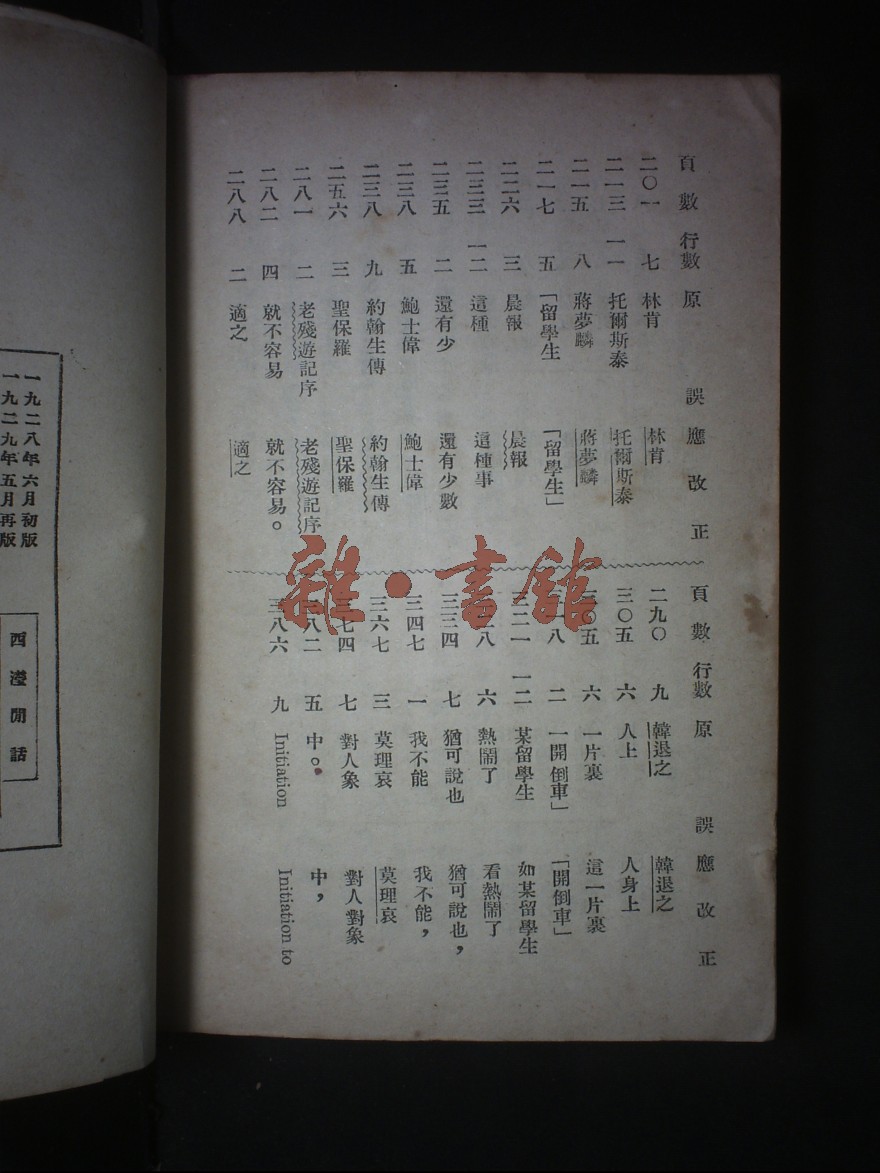 頁數 行數 原誤 應改正
二〇一 七 林肯 林肯
二一三 一一 托爾斯泰 托爾斯泰
二一五 八 蔣夢麟 蔣夢麟
二一七 五 「留學生 「留學生」
二二六 三 晨報 晨報
二三三 一二 這種 這種事
二三五 二 還有少 還有少數
二三八 五 鮑士偉 鮑士偉
二三八 九 約翰生傳 約翰生傳
二五六 三 聖保羅 聖保羅
二八一 二 老殘遊記序 老殘遊記序
二八二 四 就不容易 就不容易。
二八八 二 適之 適之
頁數 行數 原誤 應改正
二九〇 九 韓退之 韓退之
三〇五 六 人上 人身上
三〇五 六 一片裏 這一片裏
一八 二 一開倒車」 「開倒車」
三二一 一二 某留學生 如某留學生
二八 六 熱鬧了 看熱鬧了
三三四 七 猶可說也 猶可說也，
三四七 一 我不能 我不能，
三六七 三 莫理哀 莫理哀
三七四 七 對人象 對人對象
三八二 五 中。 中，
三八六 九 Initiation Initiation to
雜·書館
一九二八年六月初版
一九二九年五月再版
西瀅閒話